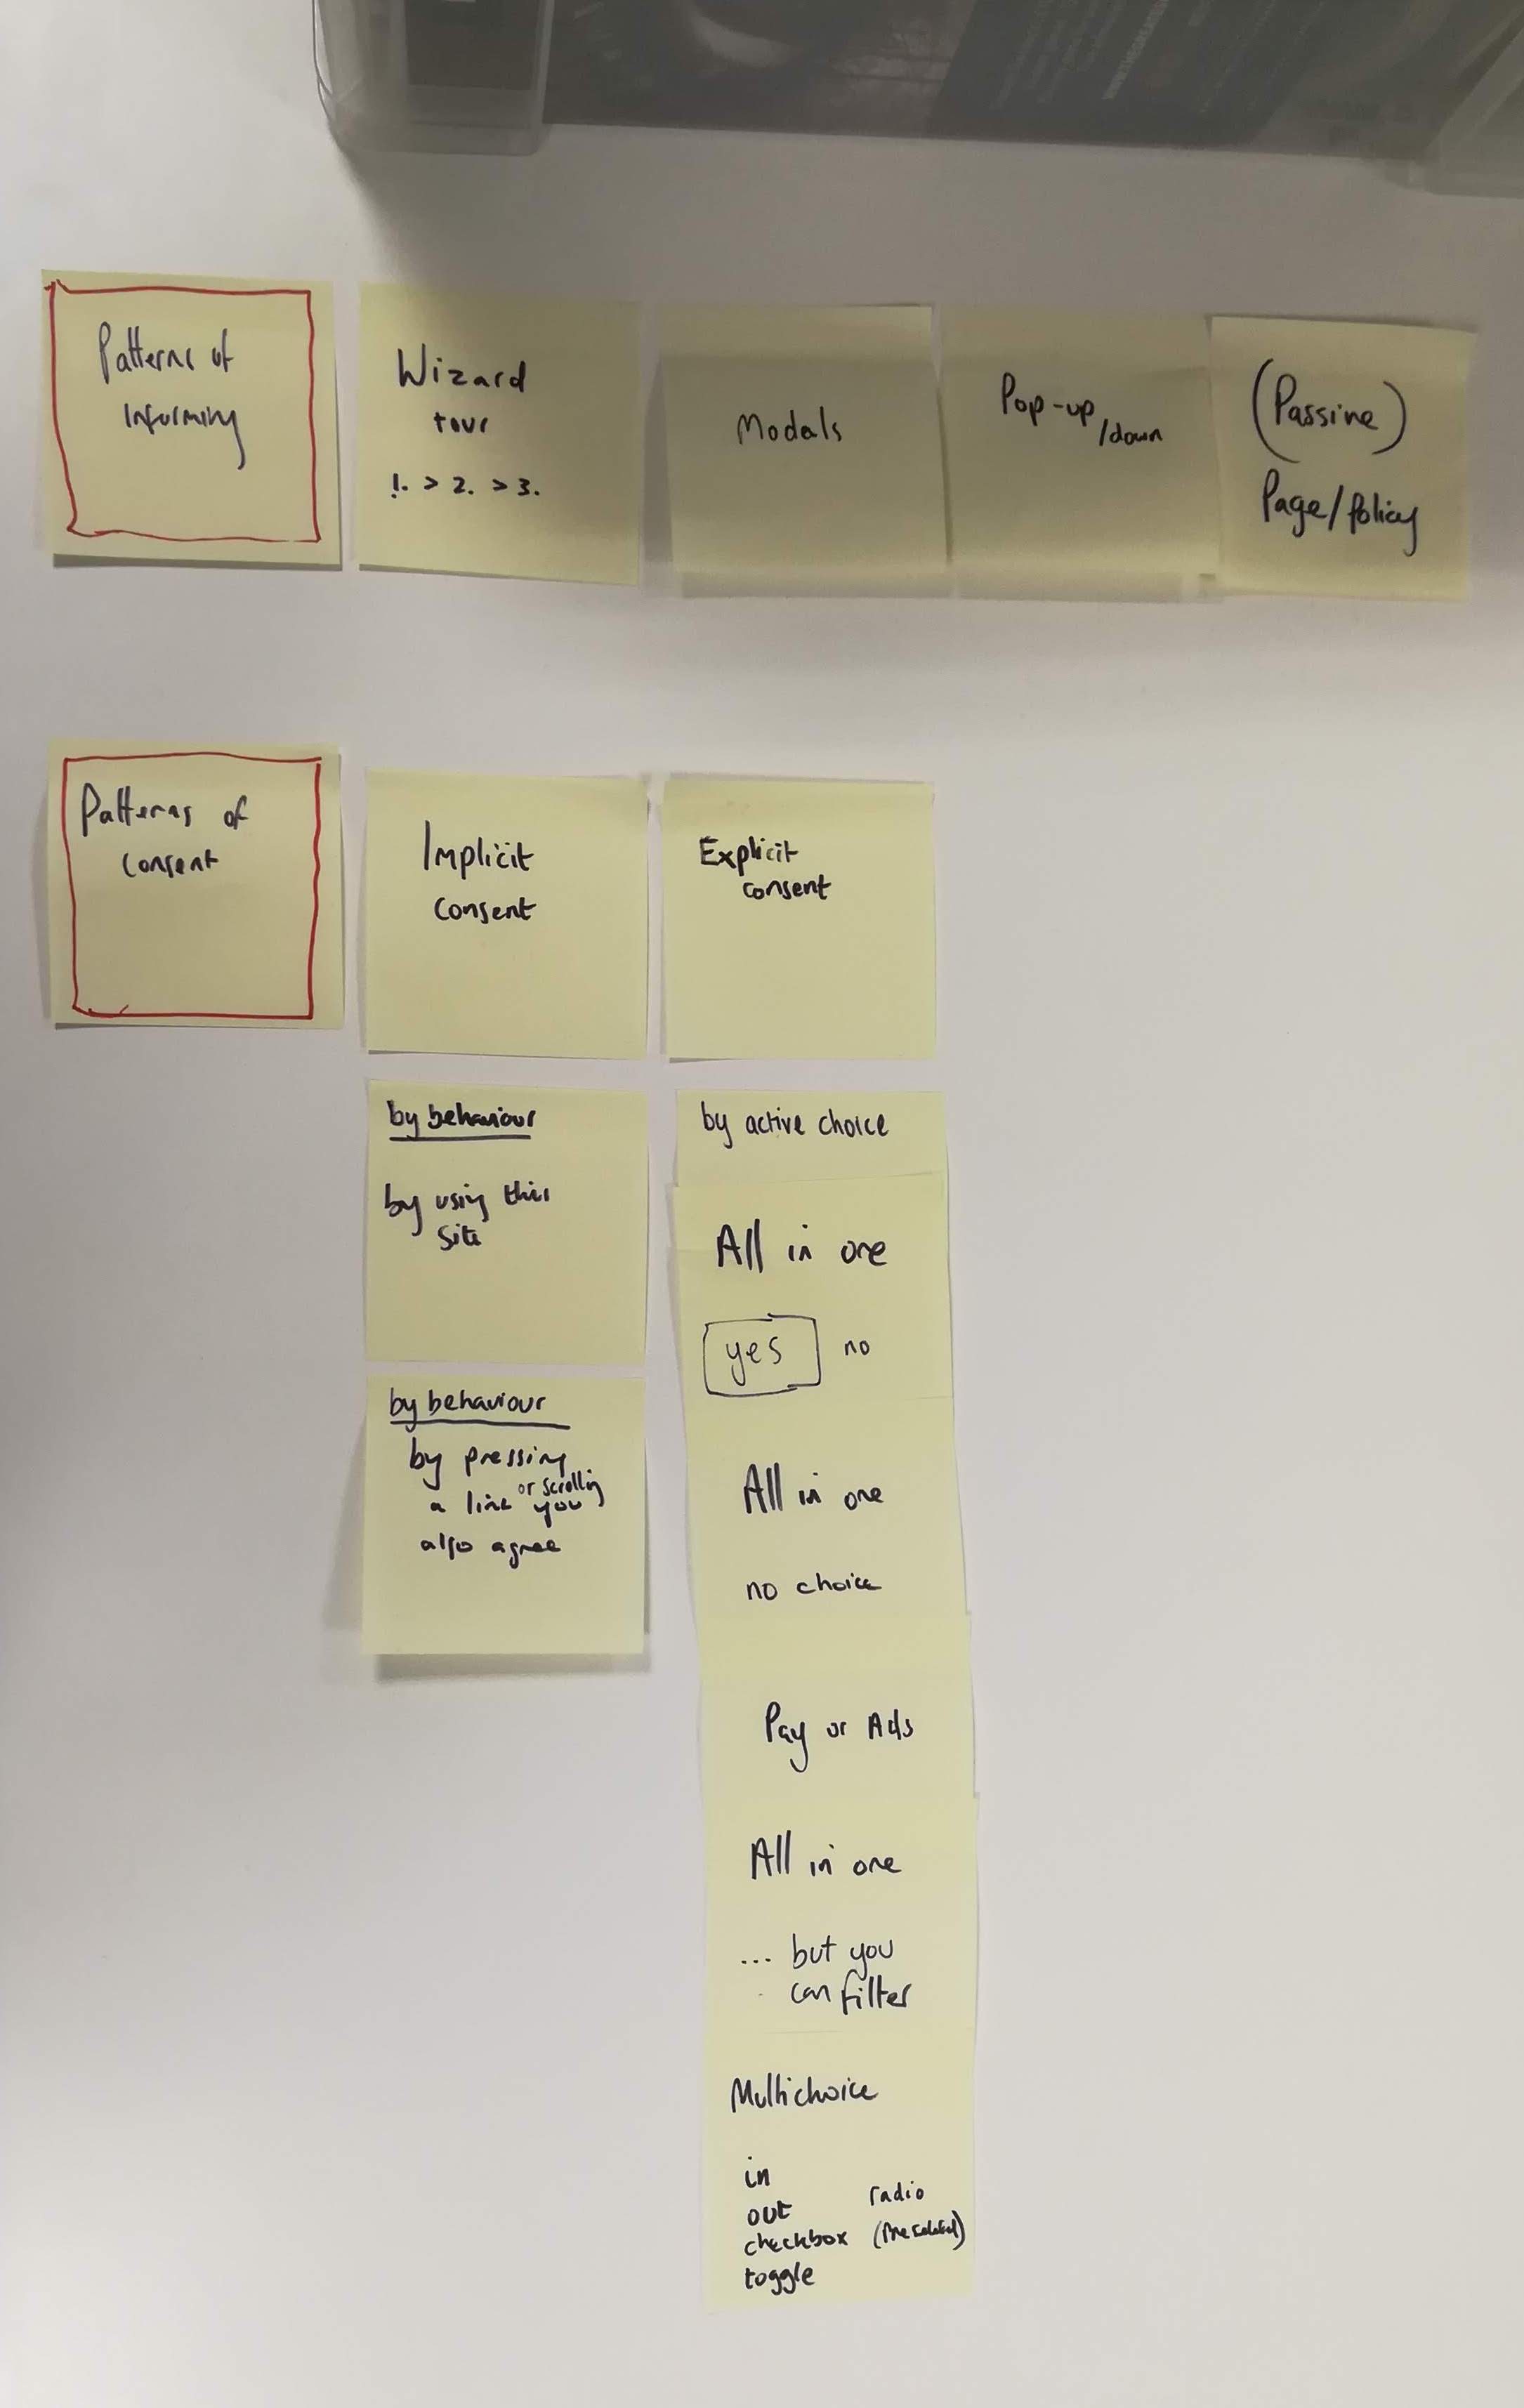 Patterns of
Informing
Wizard
tour
1. > 2. > 3.
Modals
Pop-up
/down
(Passive)
Page/Policy
Patterns of
Consent
Implicit
Consent
Explicit
consent
by behaviour
by using this
site
by behaviour
by pressing
or scrolling
a link you
also agree
by active choice
All in one
yes no
All in one
no choice
Pay or Ads
All in one
... but you
can filter
Multichoice
in
out
checkbox
toggle
radio
(Preselected)